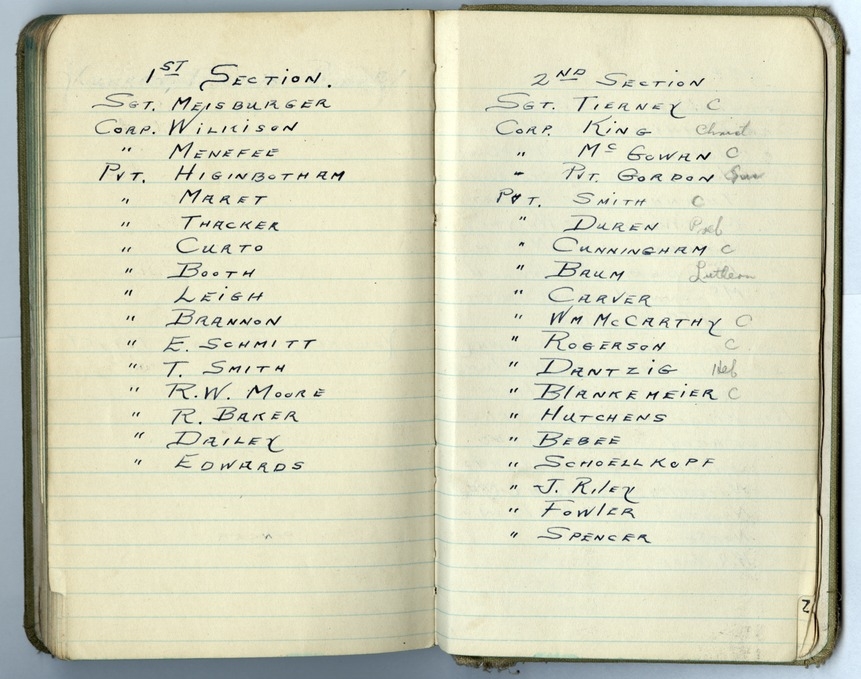 1ST SECTION.
SGT. MEISBURGER
CORP. WILKISON
" MENEFEE
PVT. HIGINBOTHAM
" MARET
" THACKER
" CURTO
" BOOTH
" LEIGH
" BRANNON
" E. SCHMITT
" T. SMITH
" R.W. MOORE
" R. BAKER
" DAILEY
" EDWARDS
2ND SECTION
SGT. TIERNEY C
CORP. KING Christ
" McGOWAN C
" PVT. GORDON
PVT. SMITH C
" DUREN
" CUNNINGHAM C
" BAUM
" CARVER
" WM McCARTHY C
" ROGERSON C
" DANTZIG Heb
" BLANKEMEIER C
" HUTCHENS
" BEBEE
" SCHOELLKOPF
" J. RILEY
" FOWLER
" SPENCER
2